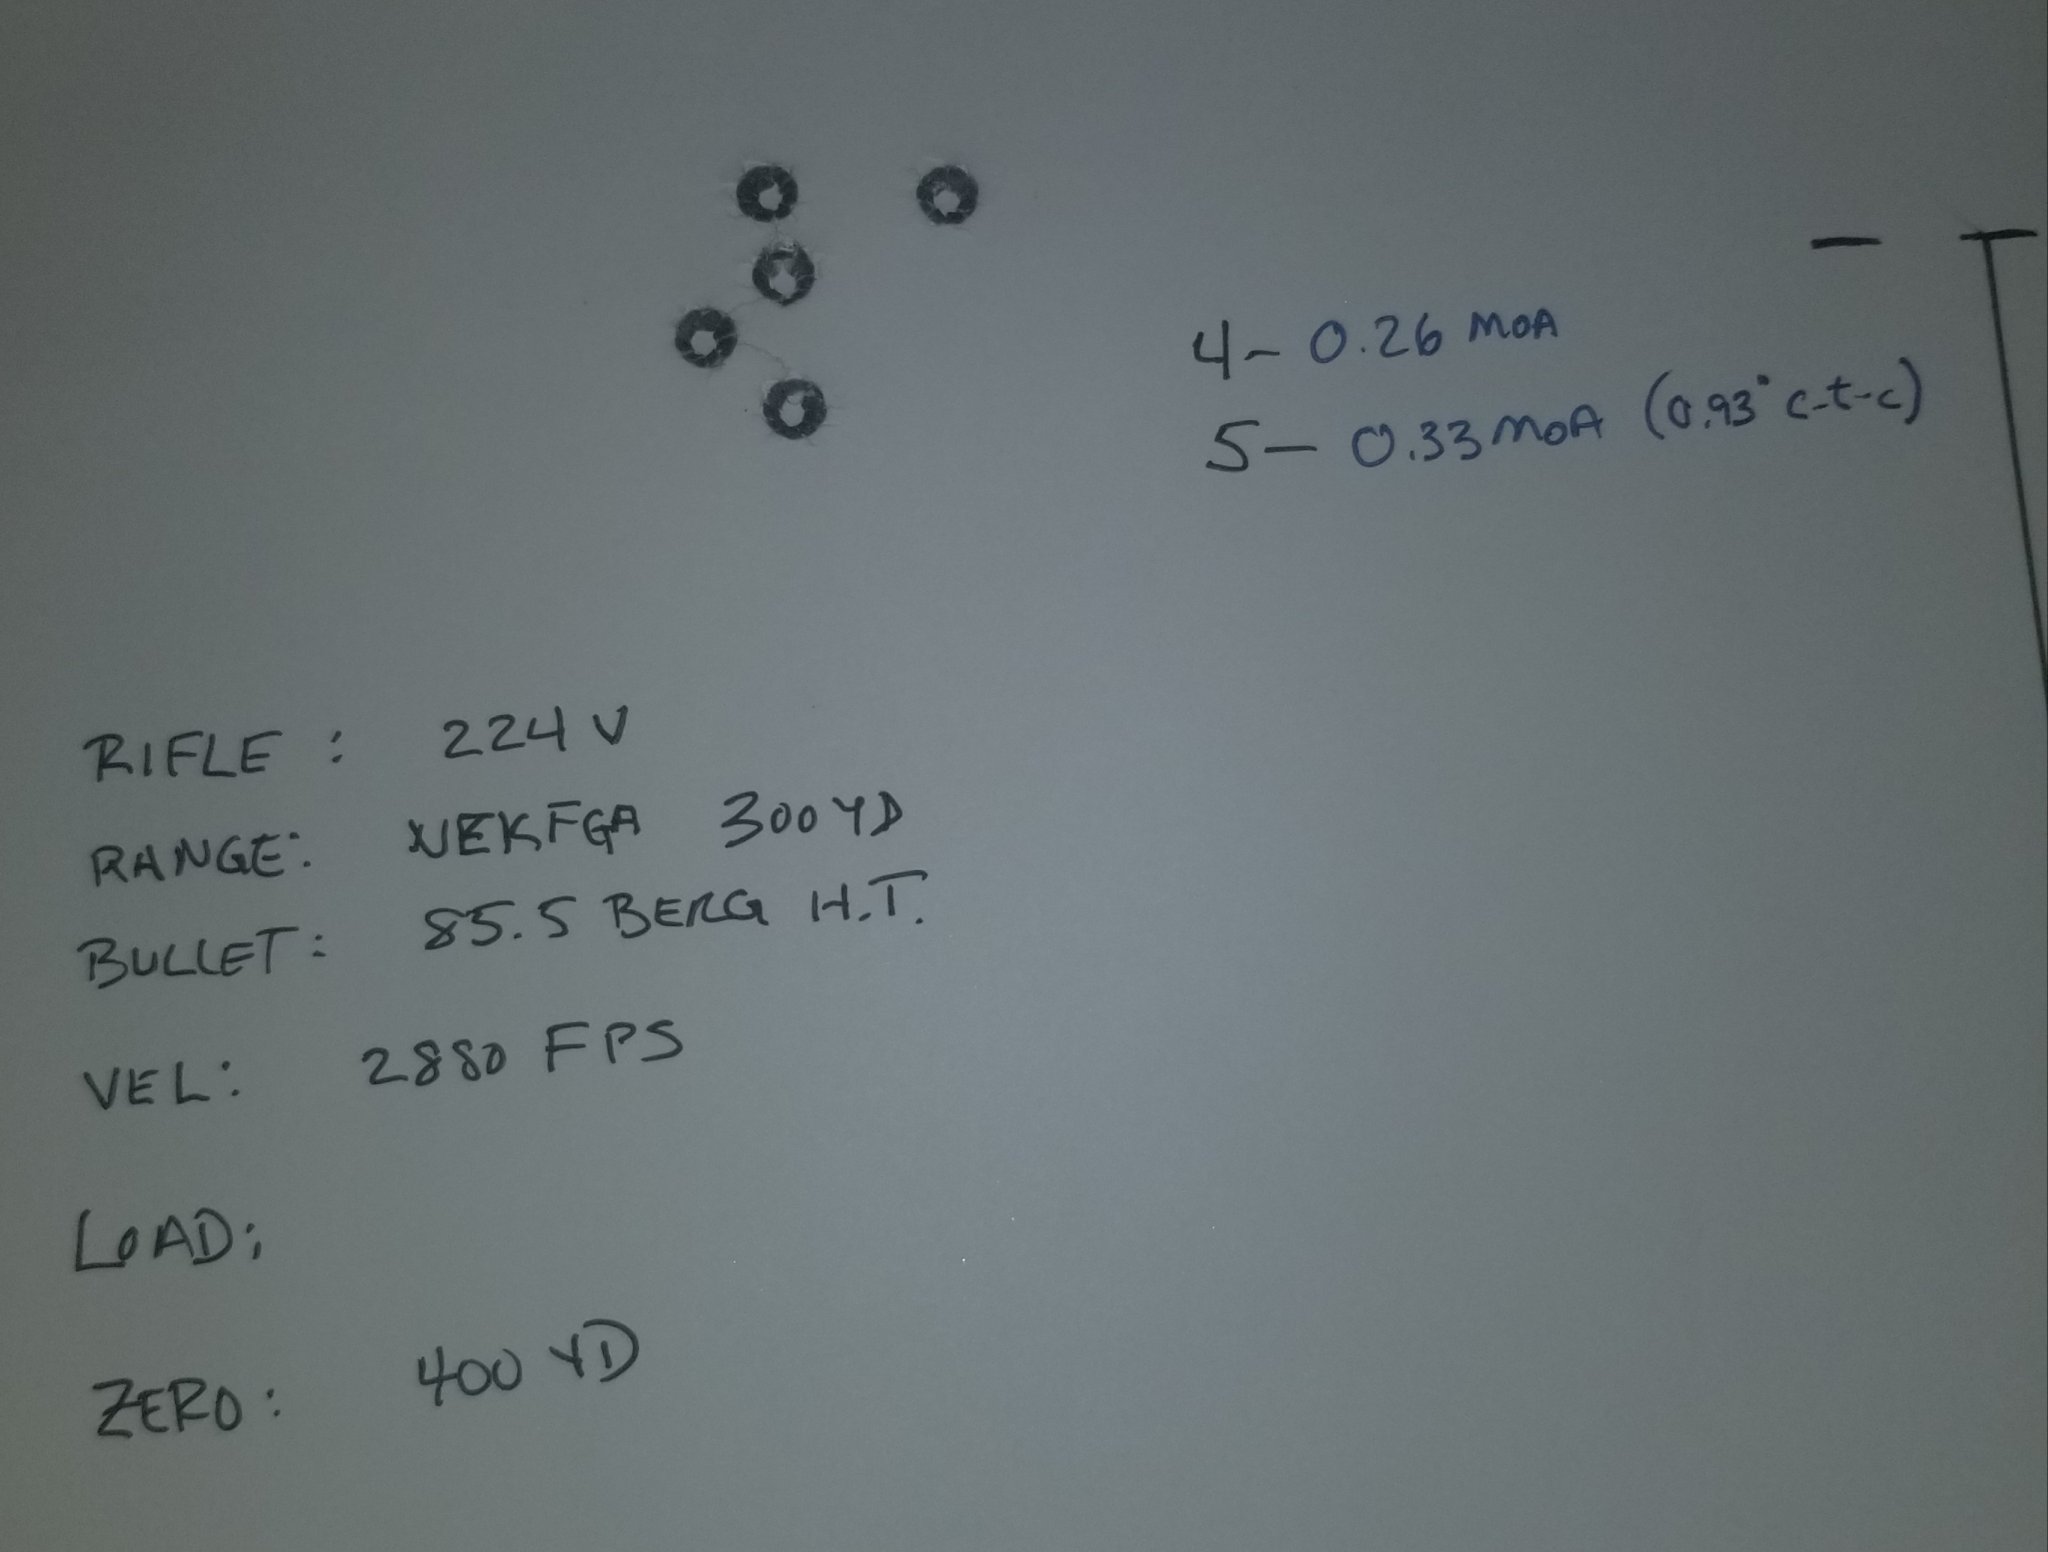 4- 0.26 MOA
5- 0.33 MOA (0.93" c-t-c)
RIFLE: 224 V
RANGE: NEKFGA 300 YD
BULLET: 85.5 BERG H.T.
VEL: 2880 FPS
LOAD:
ZERO: 400 YD